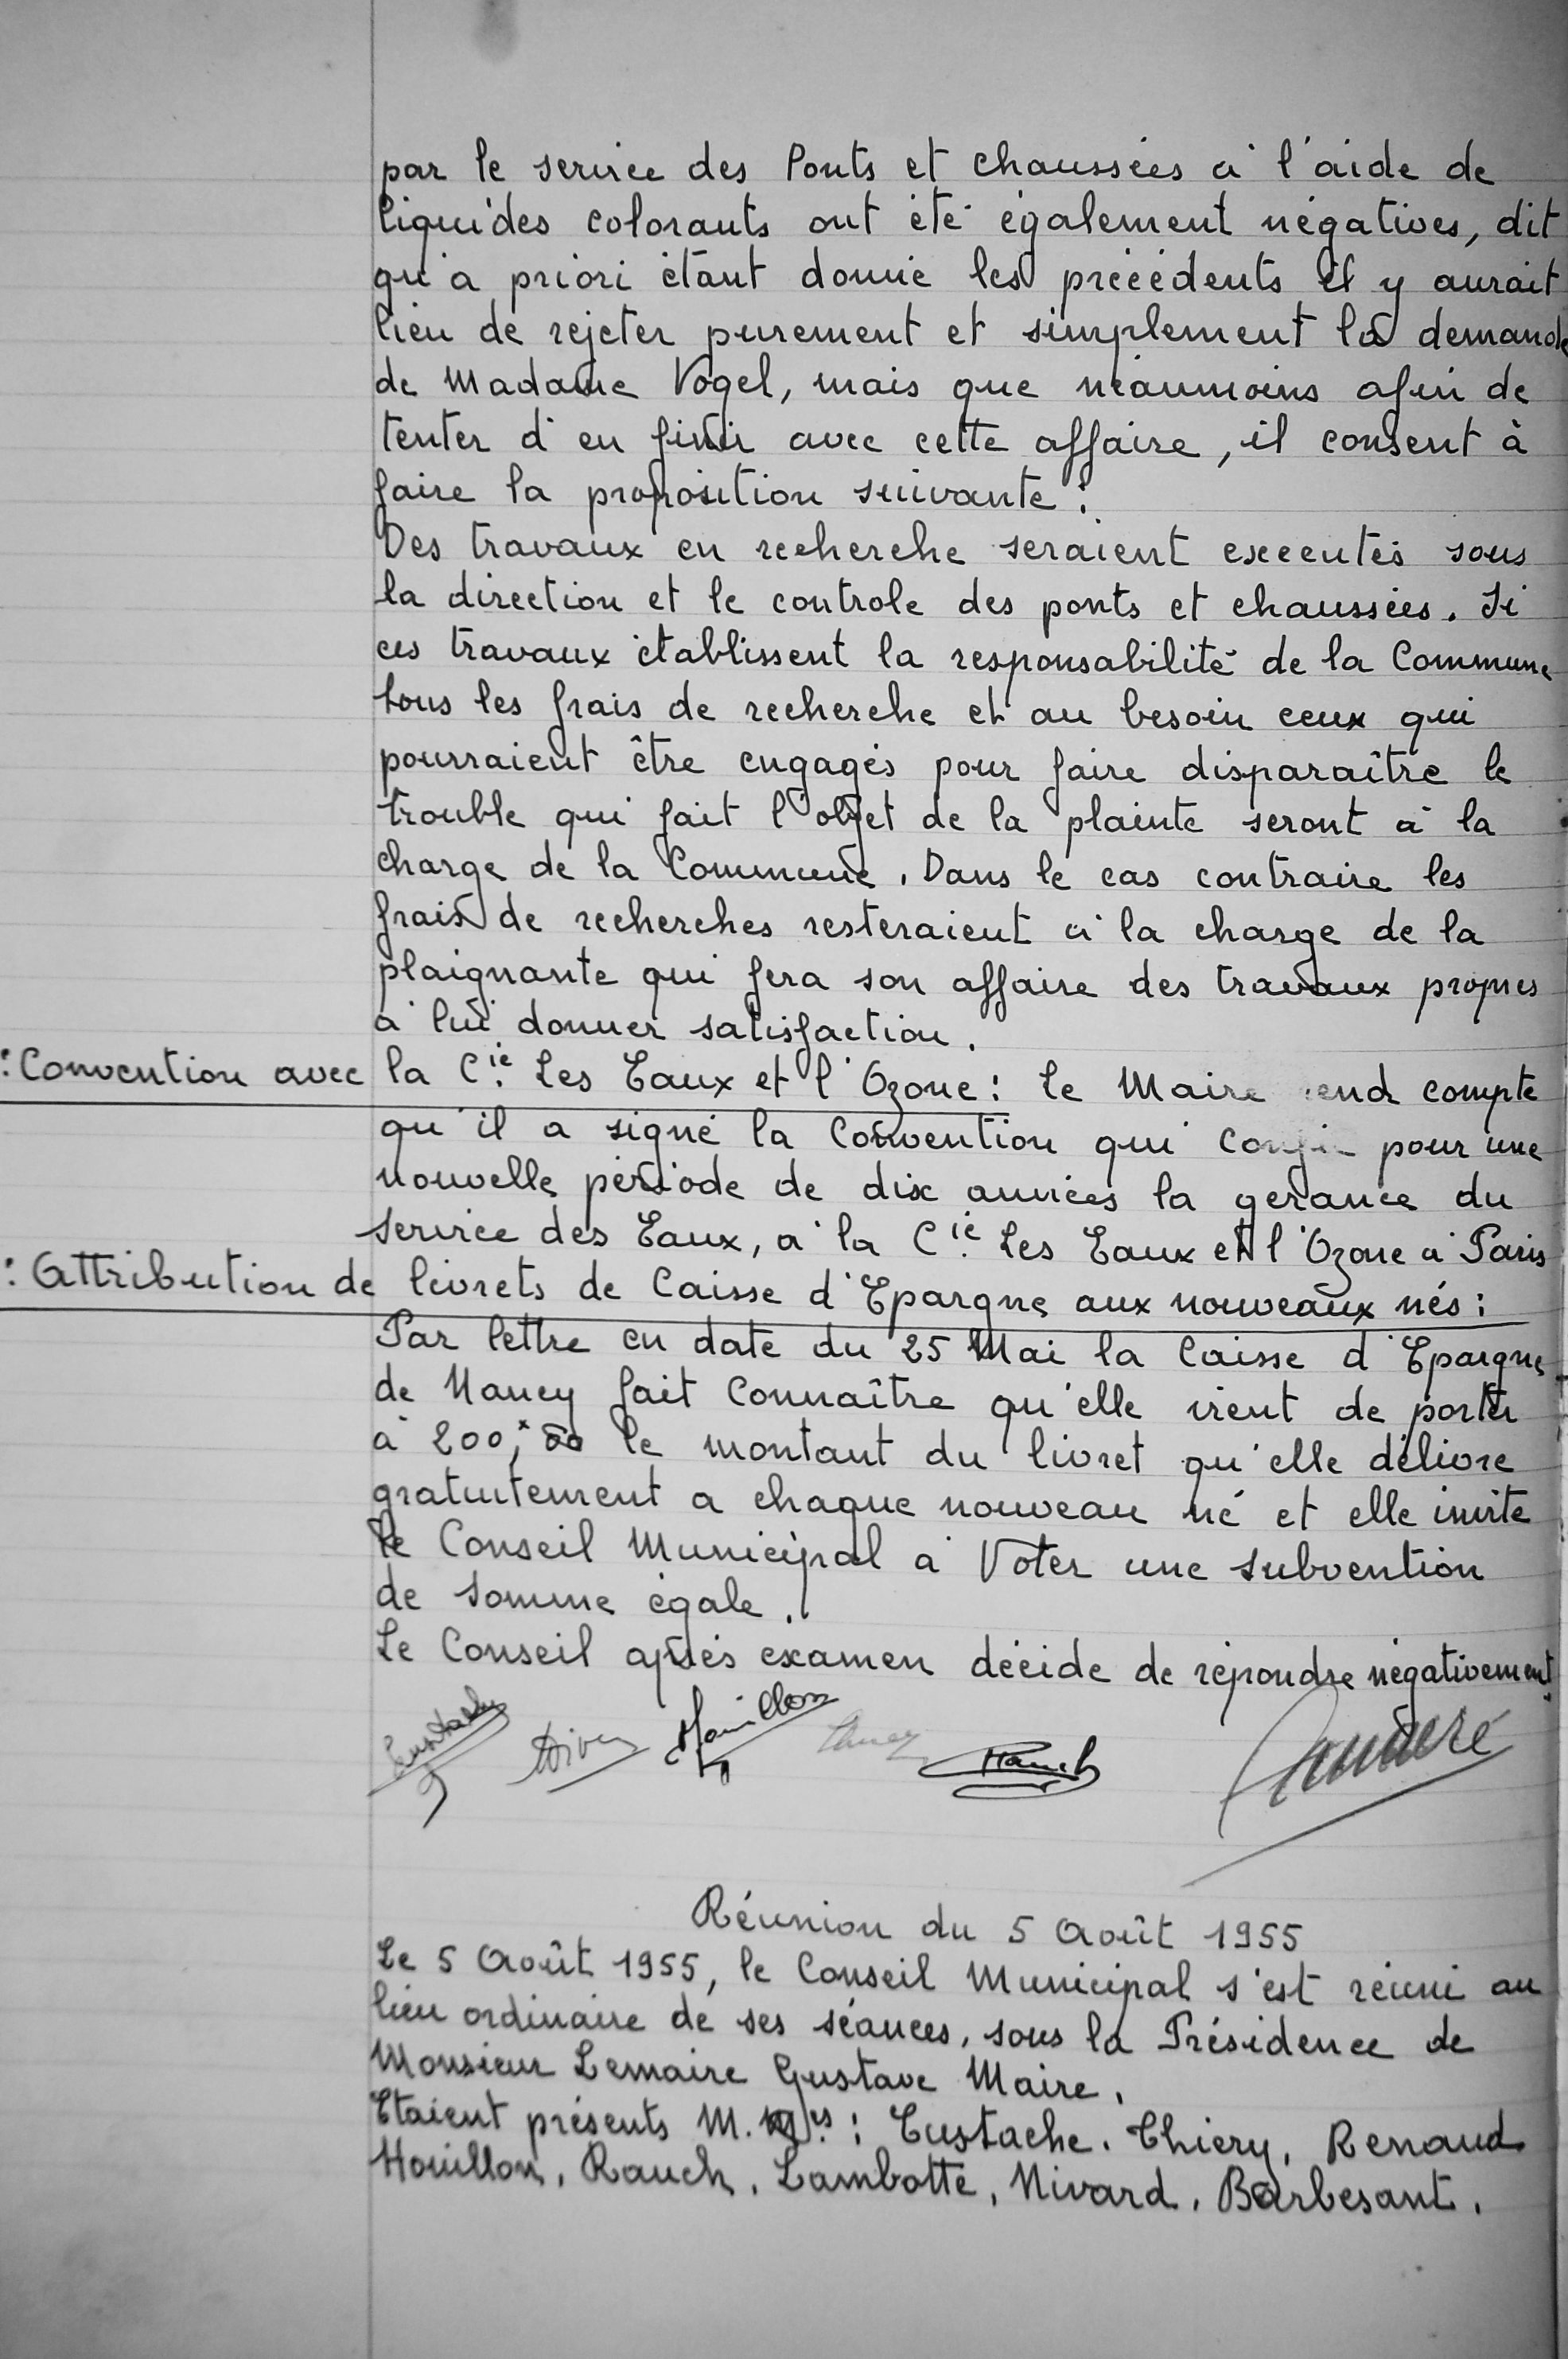 par le service des Ponts et chaussées à l'aide de
liquides colorants ont été également négatives, dit
qu'a priori étant donné les précédents il y aurait
lieu de rejeter purement et simplement la demande
de Madame Vogel, mais que néanmoins afin de
tenter d'en finir avec cette affaire, il consent à
faire la proposition suivante :
Des travaux en recherche seraient executés sous
la direction et le controle des ponts et chaussées. Si
ces travaux établissent la responsabilité de la Commune
tous les frais de recherche et au besoin ceux qui
pourraient être engagés pour faire disparaître le
trouble qui fait l'objet de la plainte seront à la
charge de la Commune. Dans le cas contraire les
frais de recherches resteraient à la charge de la
plaignante qui fera son affaire des travaux propres
à lui donner satisfaction.
: Convention avec la Cie. Les Eaux et l'Ozone : Le Maire rend compte
qu'il a signé la Convention qui confie pour une
nouvelle période de dix années la gérance du
service des Eaux, à la Cie. Les Eaux et l'Ozone à Paris
: Attribution de livrets de Caisse d'Epargne aux nouveaux nés :
Par lettre en date du 25 Mai la Caisse d'Epargne
de Nancy fait Connaître qu'elle vient de porter
à 200, 00 le montant du livret qu'elle délivre
gratuitement a chaque nouveau né et elle invite
le Conseil Municipal à Voter une subvention
de somme égale.
Le Conseil après examen décide de répondre négativement.
Eustache Houillon Rauch
Réunion du 5 Août 1955
Le 5 Août 1955, le Conseil Municipal s'est réuni au
lieu ordinaire de ses séances, sous la Présidence de
Monsieur Lemaire Gustave Maire.
Etaient présents M. Mes. : Eustache. Thiery, Renaud
Houillon, Rauch, Lambotte, Nivard, Barbesant.